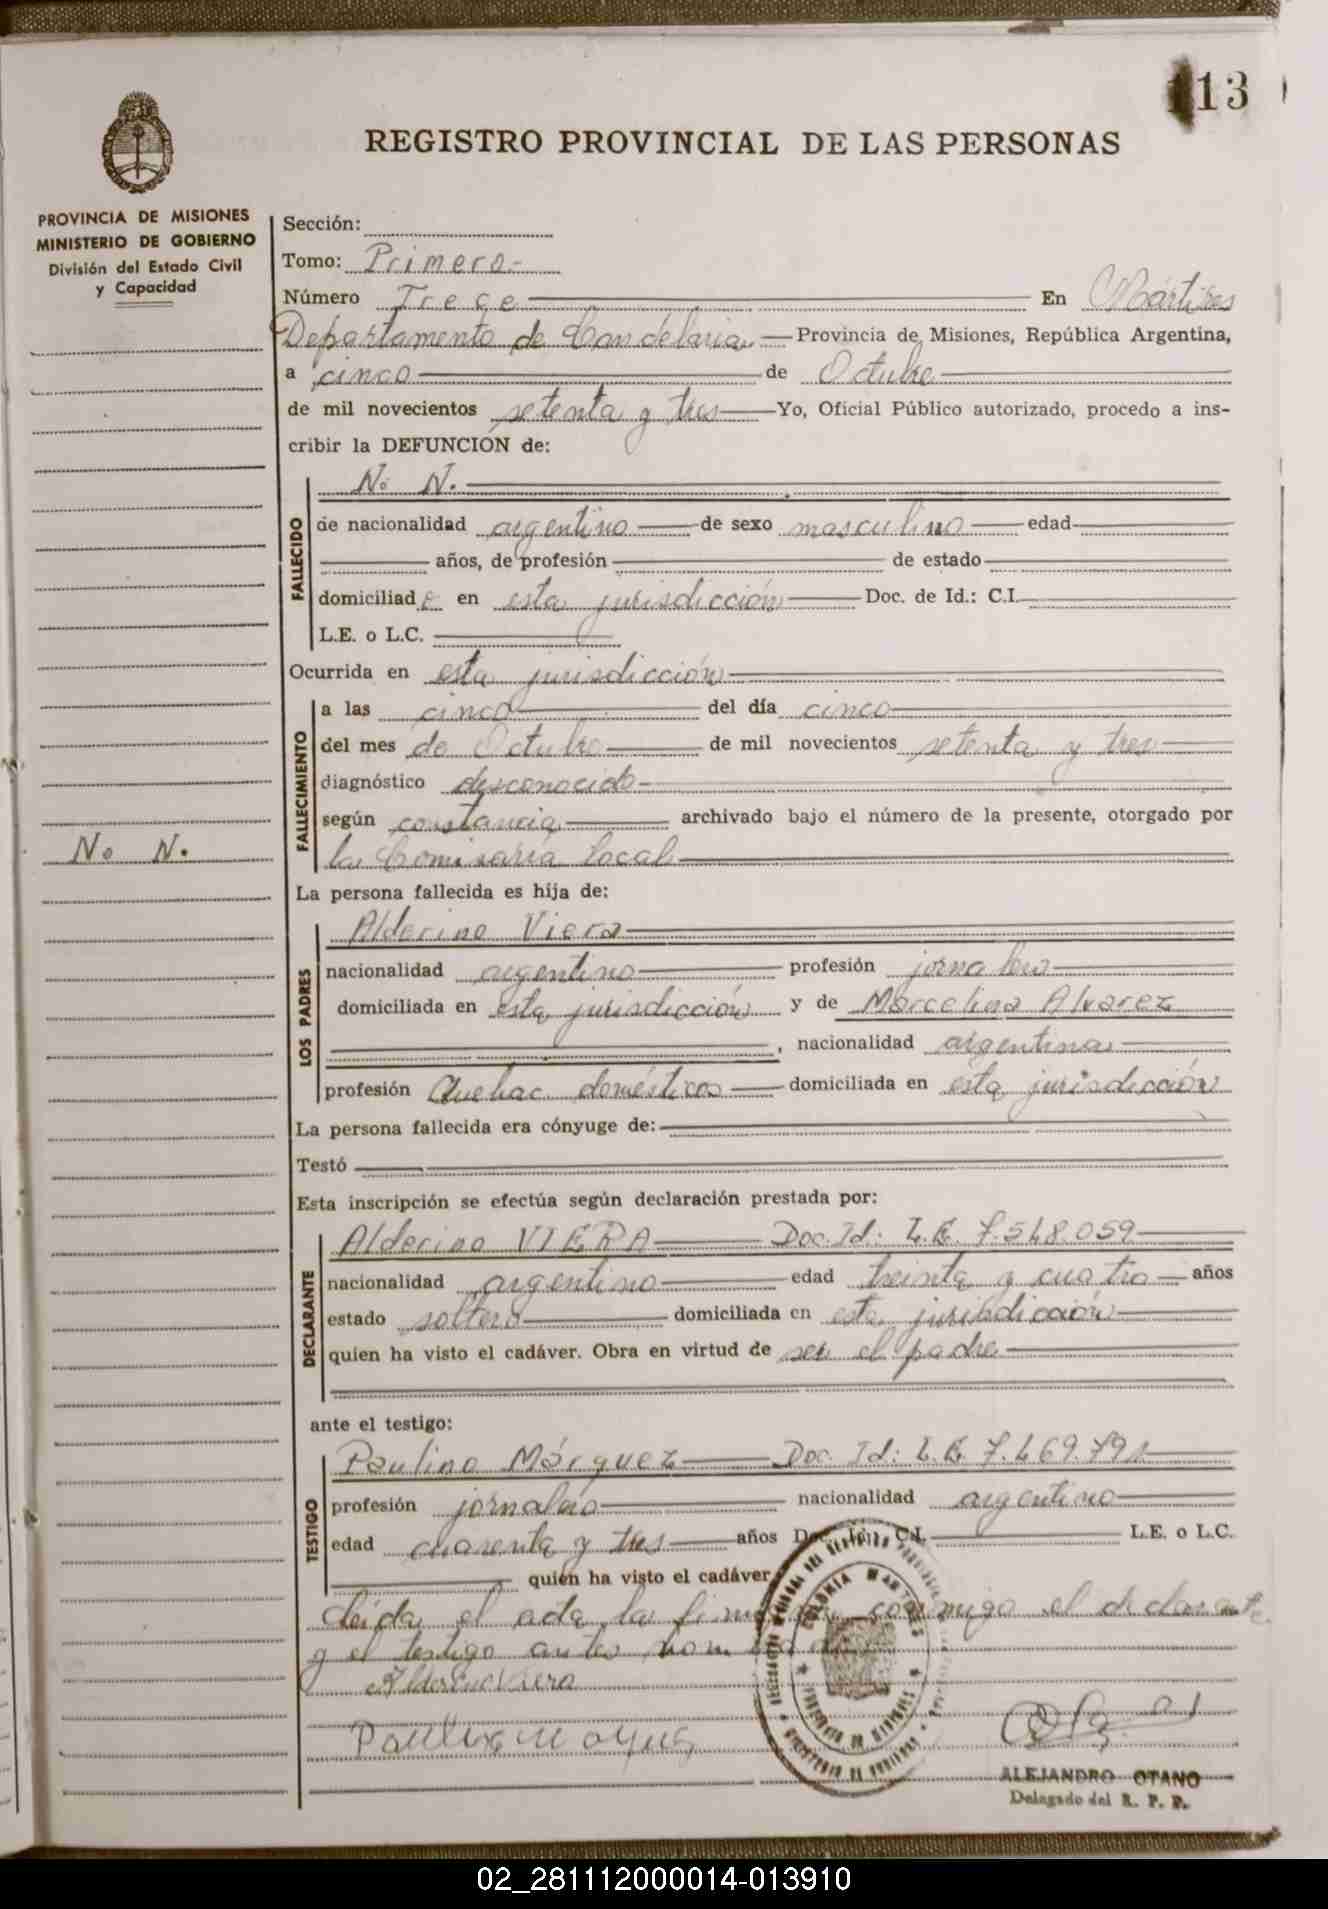 113
REGISTRO PROVINCIAL DE LAS PERSONAS
PROVINCIA DE MISIONES
MINISTERIO DE GOBIERNO
División del Estado Civil
y Capacidad
Sección:
Tomo: Primero.-
Número Trece En Mártires
Departamento de Candelaria Provincia de Misiones, República Argentina,
a cinco de Octubre
de mil novecientos setenta y tres Yo, Oficial Público autorizado, procedo a ins-
cribir la DEFUNCION de:
FALLECIDO
N. N.
de nacionalidad argentino de sexo masculino edad
años, de profesión de estado
domiciliado en esta jurisdicción Doc. de Id.: C.I.
L.E. o L.C.
Ocurrida en esta jurisdicción
FALLECIMIENTO
a las cinco del día cinco
del mes de Octubre de mil novecientos setenta y tres
diagnóstico desconocido-
según constancia archivado bajo el número de la presente, otorgado por
N. N.
la Comisaria local
La persona fallecida es hija de:
LOS PADRES
Alderino Viera
nacionalidad argentino profesión jornalero
domiciliada en esta jurisdicción y de Marcelina Alvarez
, nacionalidad argentina
profesión Quehac. domésticos domiciliada en esta jurisdicción
La persona fallecida era cónyuge de:
Testó
Esta inscripción se efectúa según declaración prestada por:
DECLARANTE
Alderino VIERA Doc. Id: L.E. 7.548.059
nacionalidad argentino edad treinta y cuatro años
estado soltero domiciliada en esta jurisdicción
quien ha visto el cadáver. Obra en virtud de ser el padre
ante el testigo:
TESTIGO
Paulino Márquez Doc. Id: L.E. 7.469.791
profesión jornalero nacionalidad argentino
edad cuarenta y tres años Doc. Id.: C.I. L.E. o L.C.
quien ha visto el cadáver
Leída el acta la firman conmigo el declarante
y el testigo antes nombrado
Alderino Viera
COLONIA MARTIRES
PROVINCIA DE MISIONES
ALEJANDRO OTANO
Delegado del R. P. P.
02_281112000014-013910